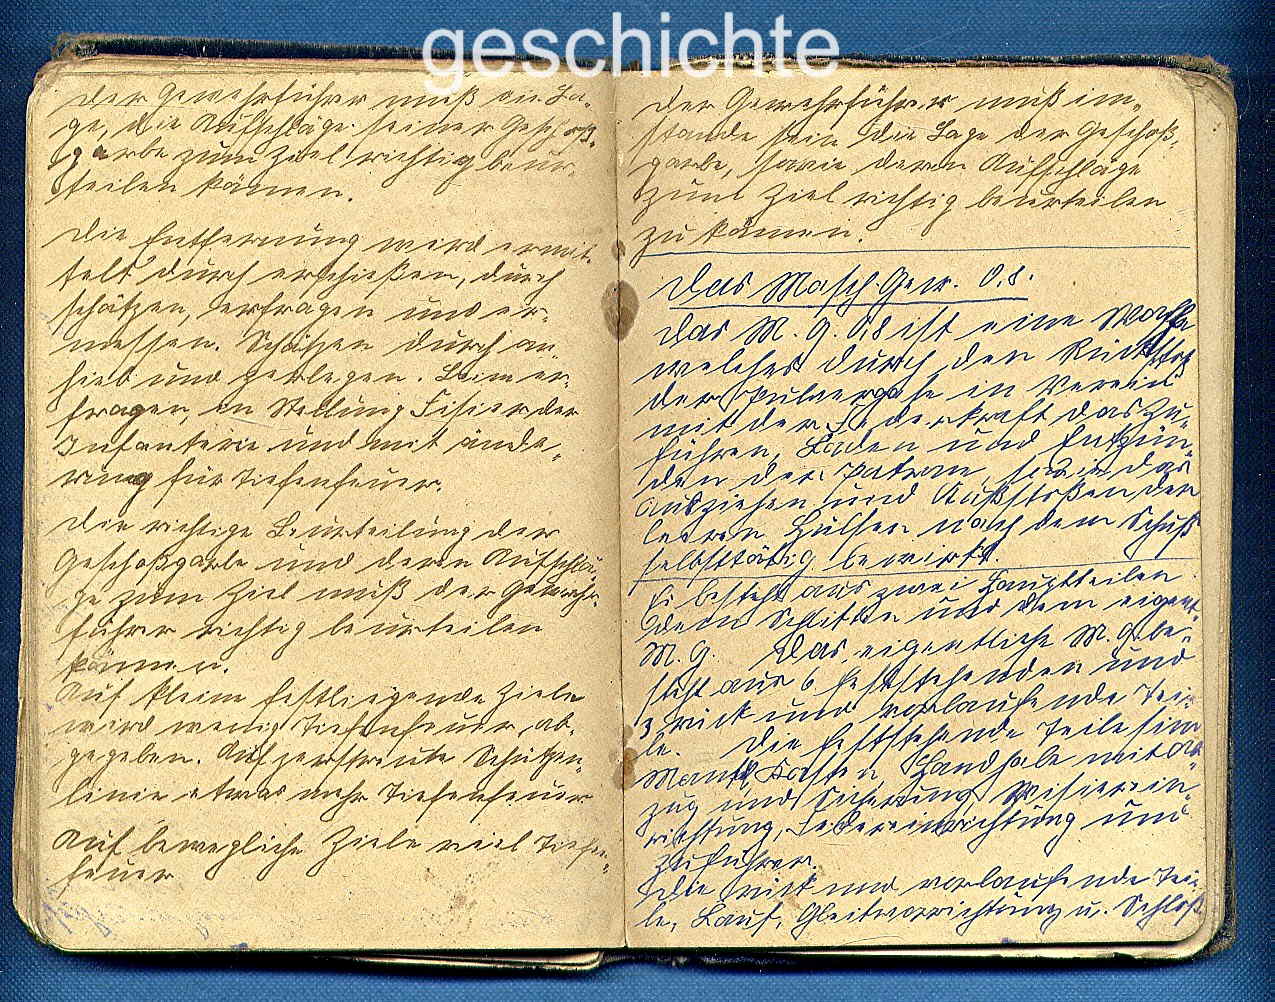 geschichte
Der Gewehrführer muß die La-
ge, die Aufschläge seiner Geschoß-
garbe zum Ziel richtig beur-
teilen können.
Die Entfernung wird ermit-
telt durch erschießen, durch
schätzen, erfragen und er-
messen. Schätzen durch an-
hieb und zerlegen. Beim er-
fragen, in Stellung Visier der
Infanterie und mit ände-
rung für Tiefenfeuer.
Die richtige Beurteilung der
Geschoßgarbe und deren Aufschlä-
ge zum Ziel muß der Gewehr-
führer richtig beurteilen
können.
Auf kleine festliegende Ziele
wird wenig Tiefenfeuer ab-
gegeben. Auf zerstreute Schützen-
linie etwas mehr Tiefenfeuer
Auf bewegliche Ziele viel Tiefen-
feuer
Der Gewehrführer muß im-
stande sein die Lage der Geschoß-
garbe, sowie deren Aufschläge
zum Ziel richtig beurteilen
zu können.
Das Masch. Gew. 0.8.
Das M. G. 08 ist eine Waffe
welches durch den Rückstoß
der Pulvergase in Verein
mit der Federkraft das Zu-
führen, Laden und Entzün-
den der Patrone, sowie das
ausziehen und Ausstoßen der
leeren Hülsen nach dem Schuß
selbsttätig bewirkt.
Es besteht aus zwei Hauptteilen
dem Schlitten und dem eigent.
M. G. Das eigentliche M. G. be-
steht aus 6 feststehenden und
3 rück und vorlaufende Tei-
le. Die feststehende Teile sind
Mantel, Kasten, Handhabe mit Ab-
zug und Sicherung, Visierein-
richtung, Federeinrichtung und
Zuführer.
Die rück und vorlaufende Tei-
le, Lauf, Gleitvorrichtung u. Schloß